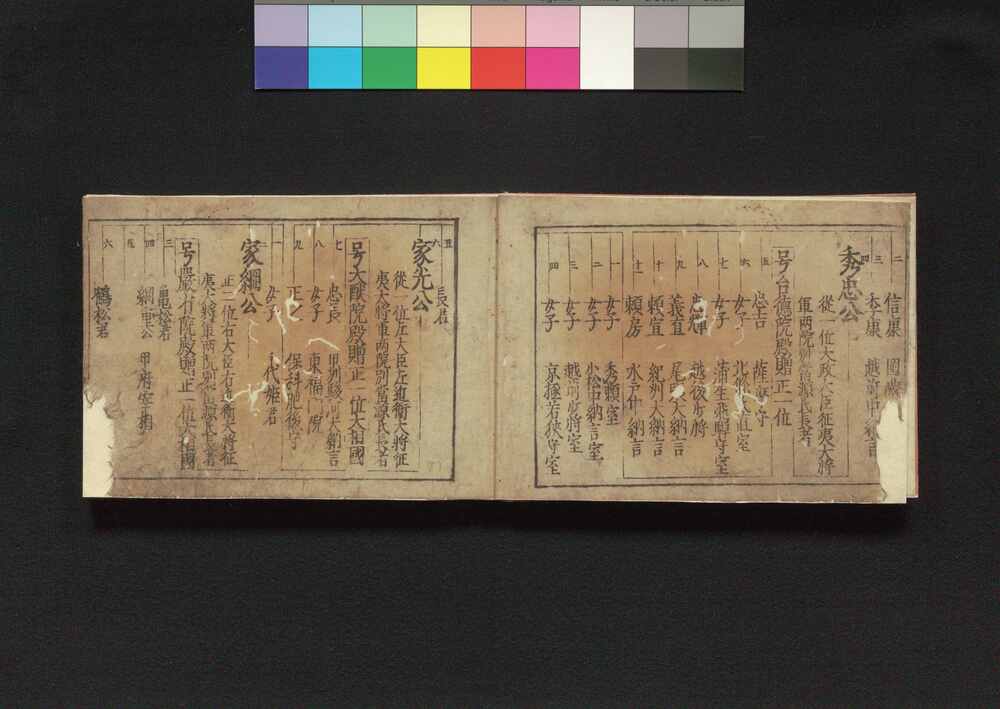 二 信康
三 秀康 越前中納言
四 秀忠公
従一位太政大臣征夷大将
軍両院別當源氏長者
号台德院殿贈正一位
五 忠吉 薩摩守
六 女子 北條 室
七 女子 蒲生飛騨守室
八 忠輝 越後少将
九 義直 尾 大納言
十 頼宣 紀州大納言
十一 頼房 水戸中納言
一 女子 秀頼室
二 女子 小松中納言室
三 女子 越前少将室
四 女子 京極若狭守室
五 長君
六 家光公
従一位左大臣左近衛大将征
夷大将軍両院別當源氏長者
号大猷院殿贈正一位大相國
七 忠長 甲州駿河大納言
八 女子 東福門院
九 正之 保科肥後守
一 女子 千代姫君
二 家綱公
正二位右大臣右近衛大将征
夷大将軍両院別當源氏長者
号嚴有院殿贈正一位大相國
三 亀松君
四 綱重公 甲府宰相
五
六 鶴松君